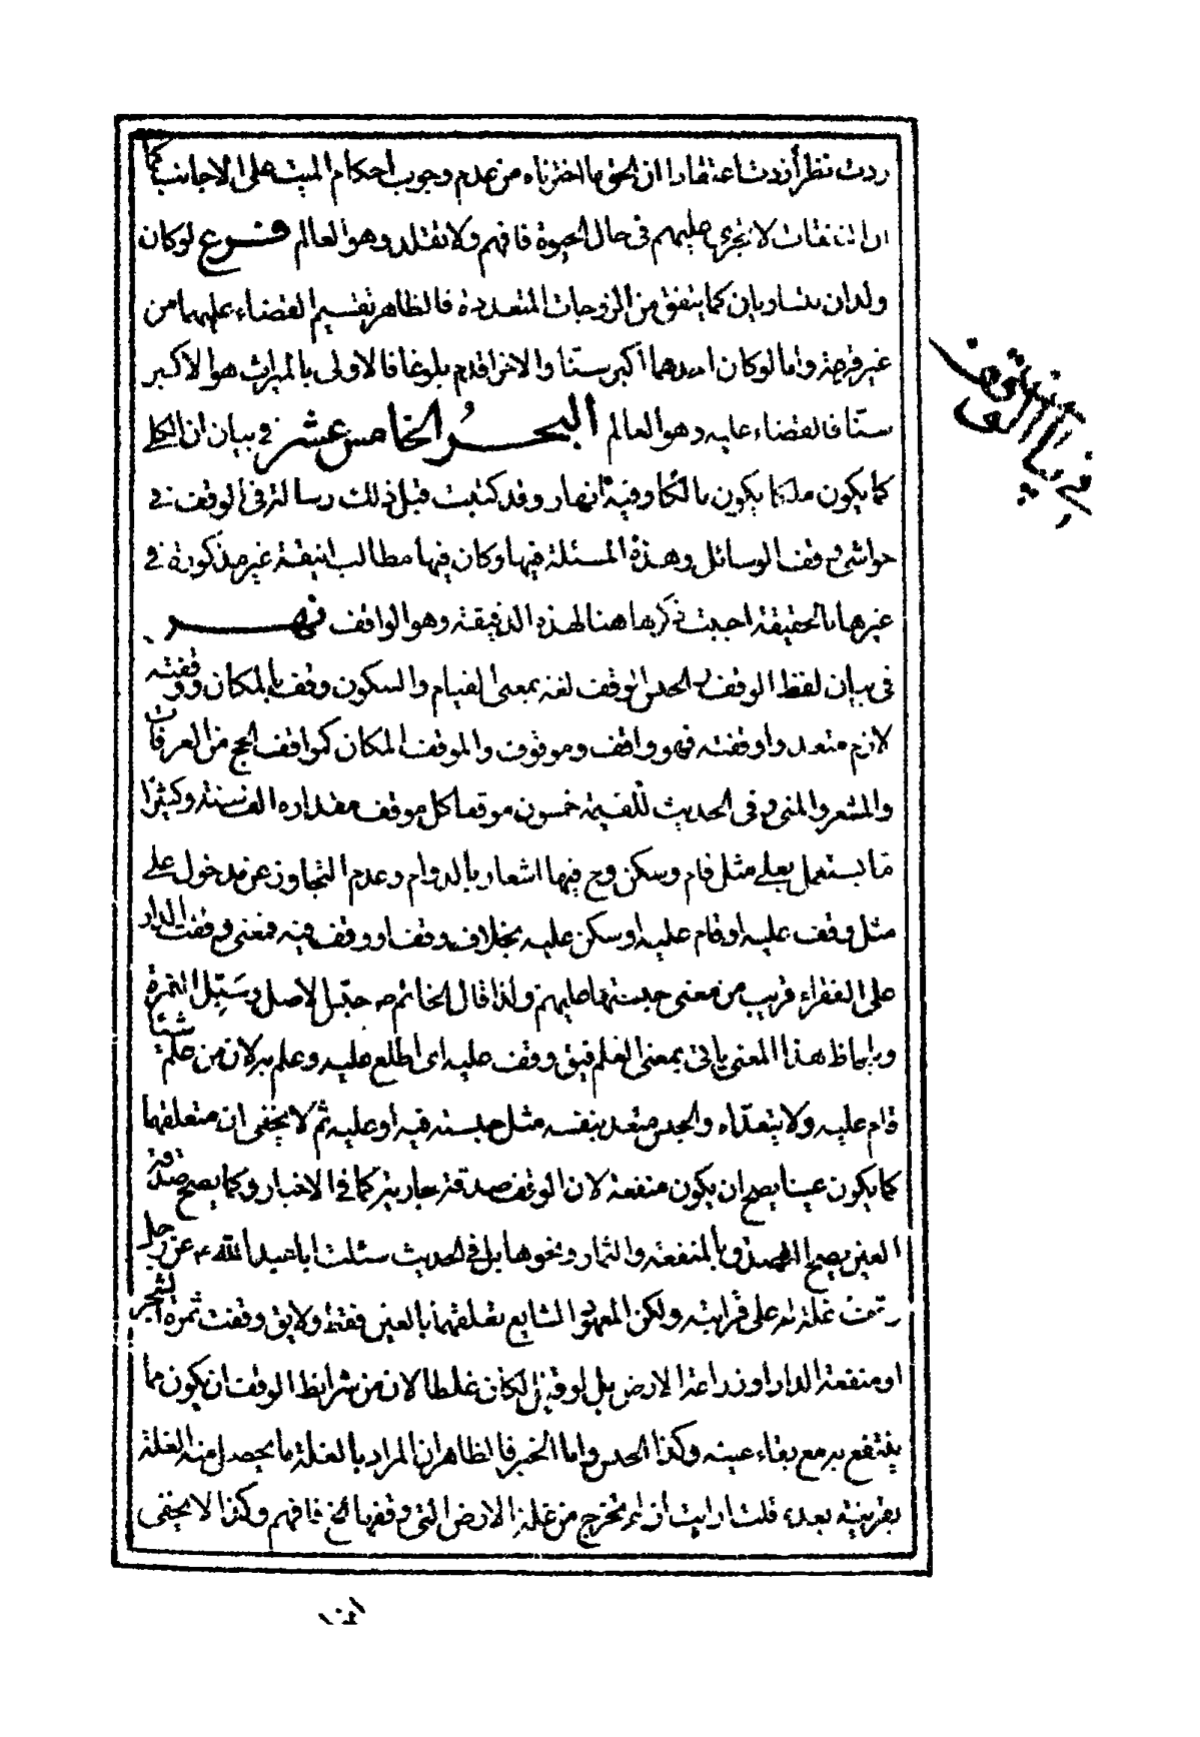 زدت نظرا زدت اعتقادا ان الحق ما اخترناه من عدم وجوب احكام الميت على الاجانب كما
ان النفقات لا تجرى عليهم فى حال الحيوة فافهم ولا تقلد وهو العالم فرع لو كان
ولدان متساويان كما يتفق من الزوجات المتعددة فالظاهر تقسيم القضاء عليهما من
غير قرعة واما لو كان احدهما اكبر سنا والاخر اقدم بلوغا فالاولى بالميراث هو الاكبر
سنا فالقضاء عليه وهو العالم البحر الخامس عشر فى بيان ان الكلى
كما يكون ملكا يكون مالكا وفيه انهار وقد كتبت قبل ذلك رسالة فى الوقف فى
حواشى وقف الوسائل وهذه المسئلة فيها وكان فيها مطالب انيقة غير مذكورة فى
غيرها بالحقيقة احببت ذكرها هنا لهذه الدقيقة وهو الواقف نهر
فى بيان لفظ الوقف والحبس الوقف لغة بمعنى القيام والسكون وقف بالمكان ووقفته
لازم متعد واوقفته فهو واقف وموقوف والموقف المكان كمواقف الحج من العرفات
والمشعر والمنى وفى الحديث للقيمة خمسون موقفا كل موقف مقداره الف سنة وكثيرا
ما يستعمل بعلى مثل قام وسكن وح فيها اشعار بالدوام وعدم التجاوز عن مدخول على
مثل وقف عليه او قام عليه او سكن عليه بخلاف وقف او وقف فيه فمعنى وقفت الدار
على الفقراء قريب من معنى حبستها عليهم ولذا قال الخاتم ص حبّس الاصل وسَبّل الثمرة
وبلحاظ هذا المعنى ياتى بمعنى العلم فيق وقف عليه اى اطلع عليه وعلم به لان من علم شيئا
قام عليه ولا يتعداه والحبس متعد بنفسه مثل حبسته فيه او عليه ثم لا يخفى ان متعلقهما
كما يكون عينا يصح ان يكون منفعة لان الوقف صدقة جارية كما فى الاخبار وكما يصح صدقة
العين يصح التصدق بالمنفعة والثمار ونحوها بل فى الحديث سئلت ابا عبد الله ع عن رجل
وقف غلة له على قرابته ولكن المعهود الشايع تعلقهما بالعين فقط ولا يق وقفت ثمرة الشجر
او منفعة الدار او زراعة الارض بل لو قيل لكان غلطا لان من شرايط الوقف ان يكون مما
ينتفع به مع بقاء عينه وكذا الحبس واما الخبر فالظاهر ان المراد بالغلة ما يحصل منه الغلة
بقرينة بعده قلت ارايت ان لم تخرج من غلة الارض التى وقفها الخ فافهم وكذا لا يخفى